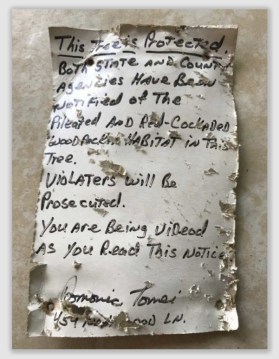 This Tree is Protected.
Both State and County
Agencies Have Been
Notified of The
Pileated And Red-Cockaded
Woodpecker Habitat in This
Tree.
Violaters Will Be
Prosecuted.
You Are Being Videod
As You Read This Notice
Domonic Tomei
454 LN.